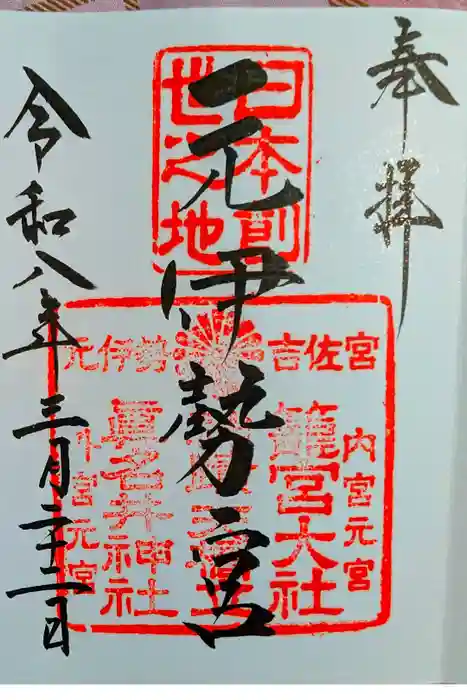 奉拝
元伊勢宮
令和八年三月二十二日
日本創
世之地
元伊勢
吉佐宮
内宮元宮
籠宮大社
眞名井神社
外宮元宮